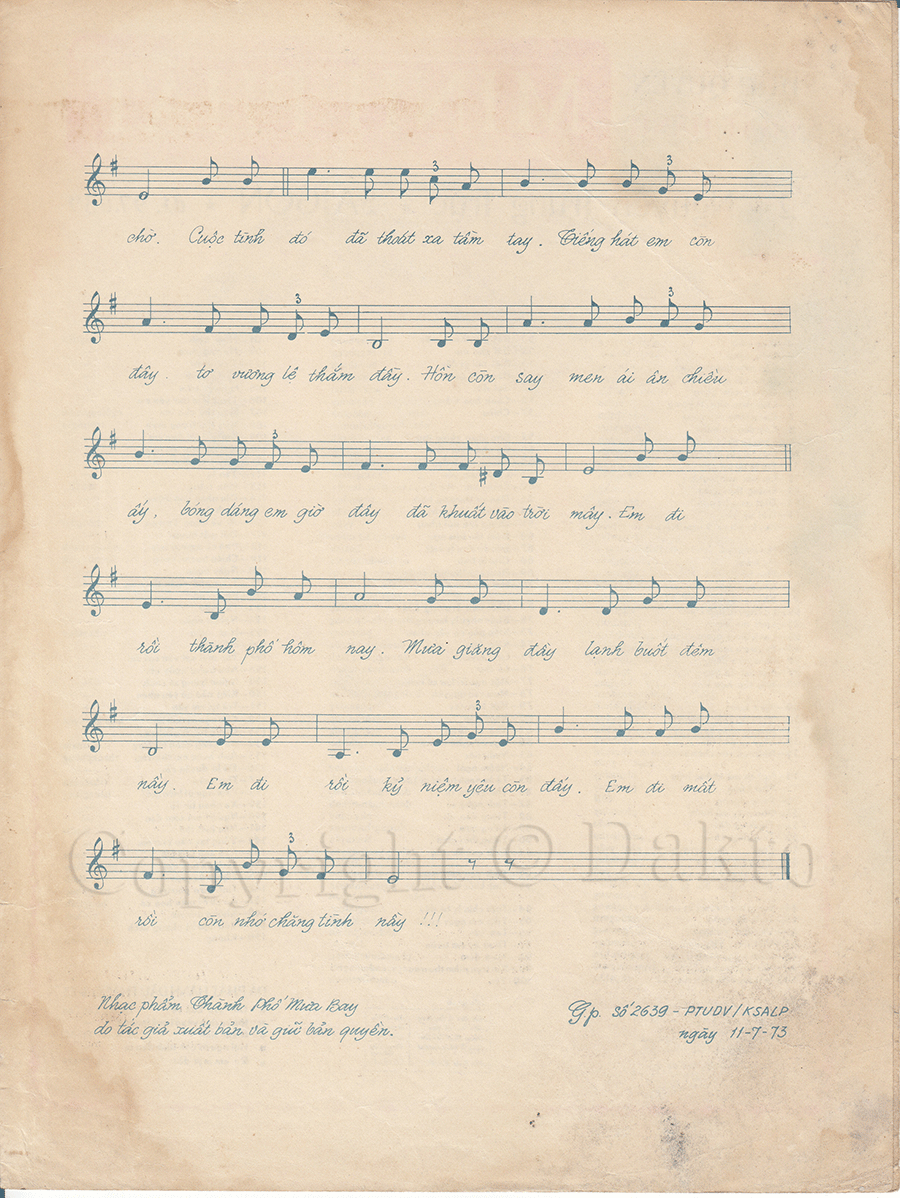 chờ. Cuộc tình đó đã thoát xa tầm tay. Tiếng hát em còn
đây. tơ vương lê thắm đầy. Hồn còn say men ái ân chiều
ấy, bóng dáng em giờ đây đã khuất vào trời mây. Em đi
rồi thành phố hôm nay. Mưa giăng đầy lạnh buốt đêm
nầy. Em đi rồi kỷ niệm yêu còn đấy. Em đi mất
Copyright © Dakto
rồi còn nhớ chăng tình nầy !!!
Nhạc phẩm Thành Phố Mưa Bay
do tác giả xuất bản và giữ bản quyền.
G.p. số 2639 - PTUDV/KSALP
ngày 11-7-73